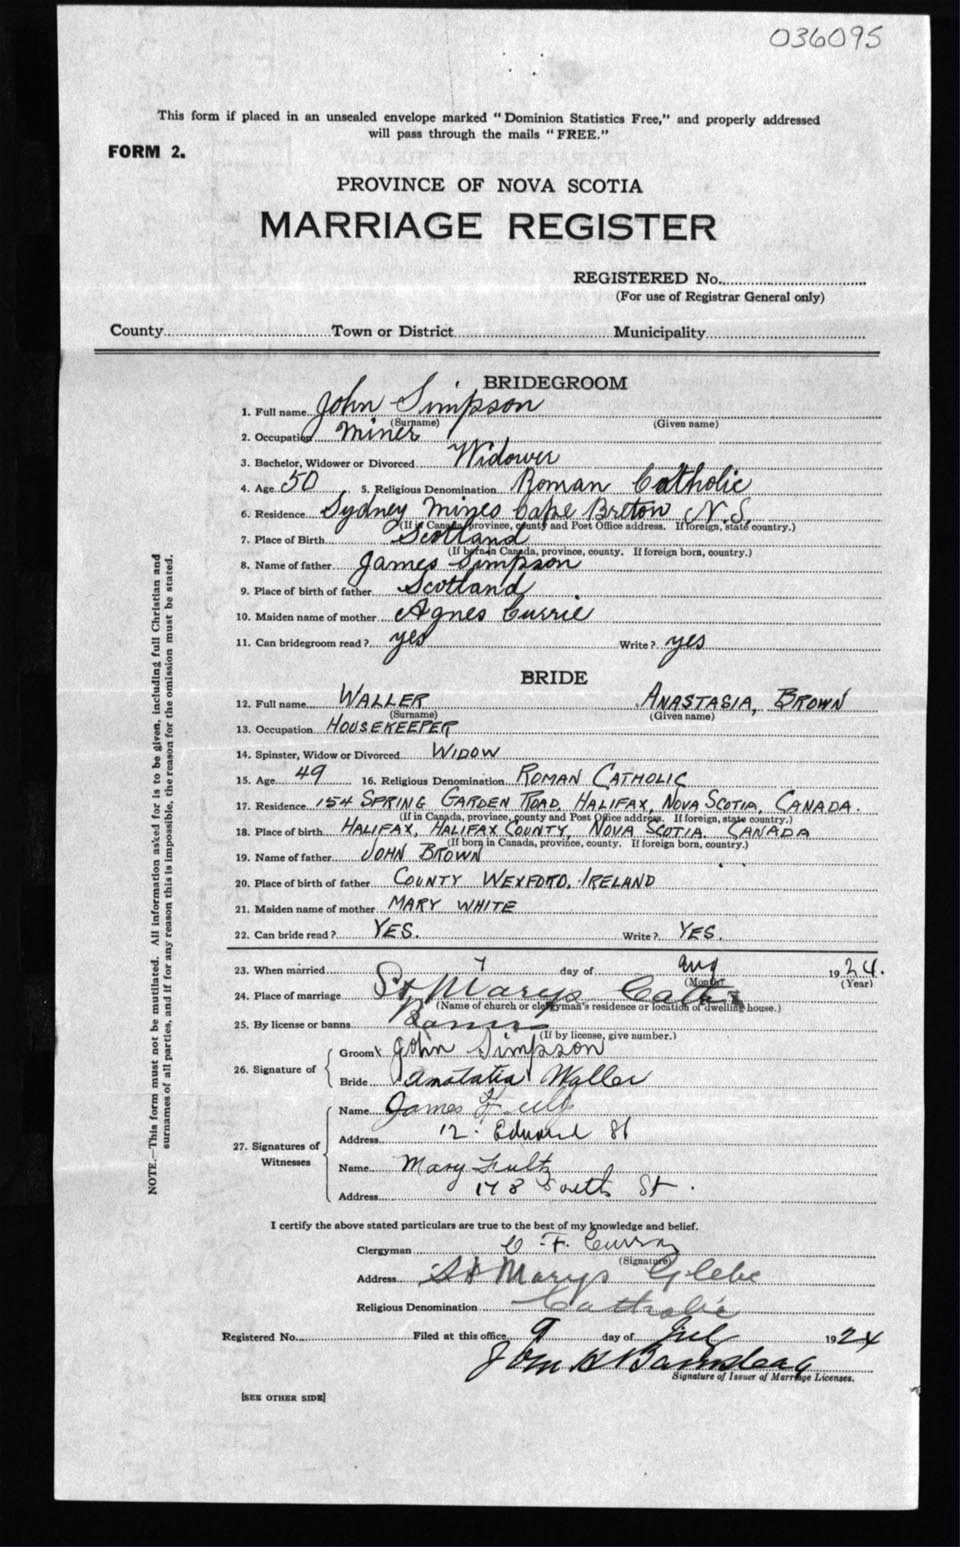 036095
This form if placed in an unsealed envelope marked "Dominion Statistics Free," and properly addressed
will pass through the mails "FREE."
FORM 2.
PROVINCE OF NOVA SCOTIA
MARRIAGE REGISTER
REGISTERED No.
(For use of Registrar General only)
County Town or District Municipality
BRIDEGROOM
1. Full name John Simpson
(Surname) (Given name)
2. Occupation Miner
3. Bachelor, Widower or Divorced Widower
4. Age 50 5. Religious Denomination Roman Catholic
6. Residence Sydney Mines Cape Breton N.S.
(If in Canada, province, county and Post Office address. If foreign, state country.)
7. Place of Birth Scotland
(If born in Canada, province, county. If foreign born, country.)
8. Name of father James Simpson
9. Place of birth of father Scotland
10. Maiden name of mother Agnes Currie
11. Can bridegroom read? yes Write? yes
BRIDE
12. Full name WALLER ANASTASIA, BROWN
(Surname) (Given name)
13. Occupation HOUSEKEEPER
14. Spinster, Widow or Divorced WIDOW
15. Age 49 16. Religious Denomination ROMAN CATHOLIC
17. Residence 154 SPRING GARDEN ROAD, HALIFAX, NOVA SCOTIA, CANADA.
(If in Canada, province, county and Post Office address. If foreign, state country.)
18. Place of birth HALIFAX, HALIFAX COUNTY, NOVA SCOTIA. CANADA
(If born in Canada, province, county. If foreign born, country.)
19. Name of father JOHN BROWN
20. Place of birth of father COUNTY WEXFORD, IRELAND
21. Maiden name of mother MARY WHITE
22. Can bride read? YES. Write? YES.
23. When married 7 day of Aug 1924.
(Month) (Year)
24. Place of marriage St Marys Cath
(Name of church or clergyman's residence or location of dwelling house.)
25. By license or banns Banns
(If by license, give number.)
26. Signature of
Groom John Simpson
Bride Anatatia Waller
27. Signatures of Witnesses
Name James
Address 12 Edward St
Name Mary Fultz
Address 178 South St.
I certify the above stated particulars are true to the best of my knowledge and belief.
Clergyman C. F. Curran
(Signature)
Address St Marys Glebe
Religious Denomination Catholic
Registered No. Filed at this office 9 day of 1924
John
Signature of Issuer of Marriage Licenses.
[SEE OTHER SIDE]
NOTE.—This form must not be mutilated. All information asked for is to be given, including full Christian and
surnames of all parties, and if for any reason this is impossible, the reason for the omission must be stated.